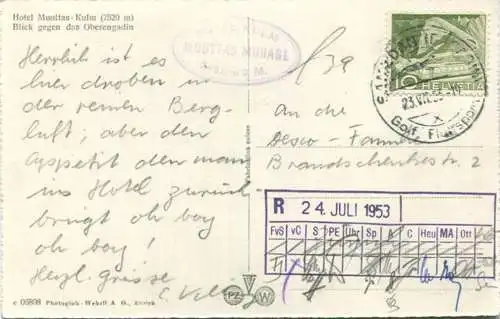 Hotel Muottas-Kulm (2520 m)
Blick gegen das Oberengadin
Herrlich ist es
hier droben in
der reinen Berg-
luft; aber den
Appetit den man
ins Hotel zurück
bringt oh boy
oh boy!
Herzl. Grüsse
MUOTTAS MURAGL
HELVETIA
23.VII.53
Golf, Flugsport
An die
Desco-
Brandschenkestr. 2
R 24. JULI 1953
FvS vC S PE Uhr Sp A C Heu MA Ott
PZ W
c 05898 Photoglob-Wehrli A. G., Zürich